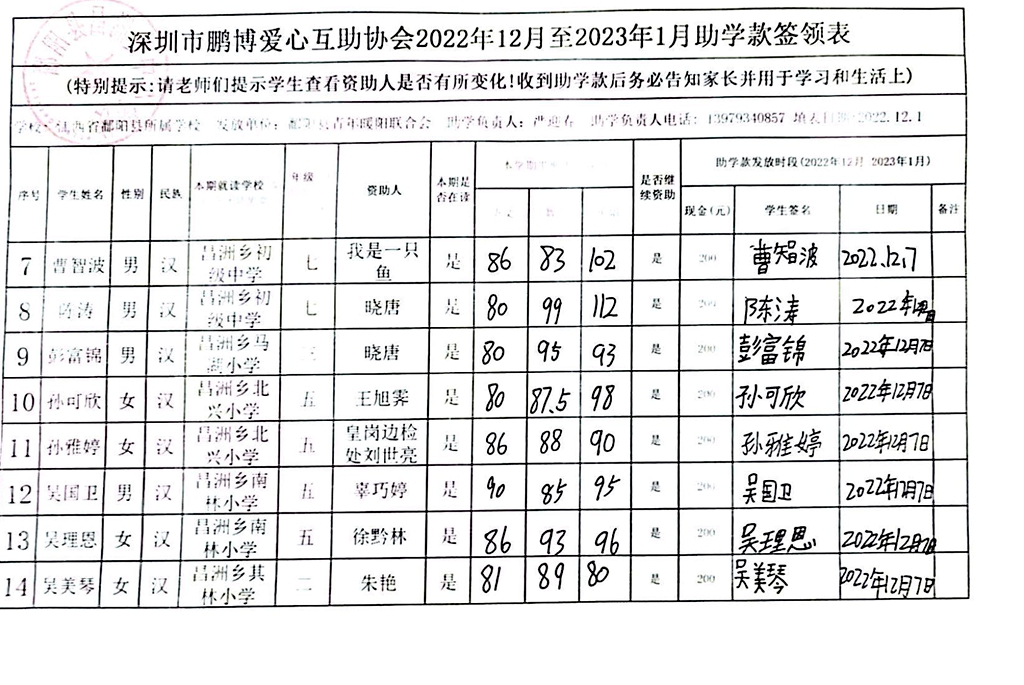 深圳市鹏博爱心互助协会2022年12月至2023年1月助学款签领表
(特别提示:请老师们提示学生查看资助人是否有所变化!收到助学款后务必告知家长并用于学习和生活上)
学校: 江西省鄱阳县所属学校 发放单位: 鄱阳县青年暖阳联合会 助学负责人: 严迎春 助学负责人电话: 13979340857 填表日期:2022.12.1
序号 学生姓名 性别 民族 本期就读学校 年级 资助人 本期是否在读 是否继续资助 助学款发放时段(2022年12月 2023年1月)
现金(元) 学生签名 日期 备注
7 曹智波 男 汉 昌洲乡初级中学 七 我是一只鱼 是 86 83 102 是 200 曹智波 2022.12.7
8 陈涛 男 汉 昌洲乡初级中学 七 晓唐 是 80 99 112 是 200 陈涛 2022年
9 彭富锦 男 汉 昌洲乡马湖小学 三 晓唐 是 80 95 93 是 200 彭富锦 2022年12月7日
10 孙可欣 女 汉 昌洲乡北兴小学 五 王旭霁 是 80 87.5 98 是 200 孙可欣 2022年12月7日
11 孙雅婷 女 汉 昌洲乡北兴小学 五 皇岗边检处刘世亮 是 86 88 90 是 200 孙雅婷 2022年12月7日
12 吴国卫 男 汉 昌洲乡南林小学 五 辜巧婷 是 90 85 95 是 200 吴国卫 2022年12月7日
13 吴理恩 女 汉 昌洲乡南林小学 五 徐黔林 是 86 93 96 是 200 吴理恩 2022年12月7日
14 吴美琴 女 汉 昌洲乡其林小学 二 朱艳 是 81 89 80 是 200 吴美琴 2022年12月7日